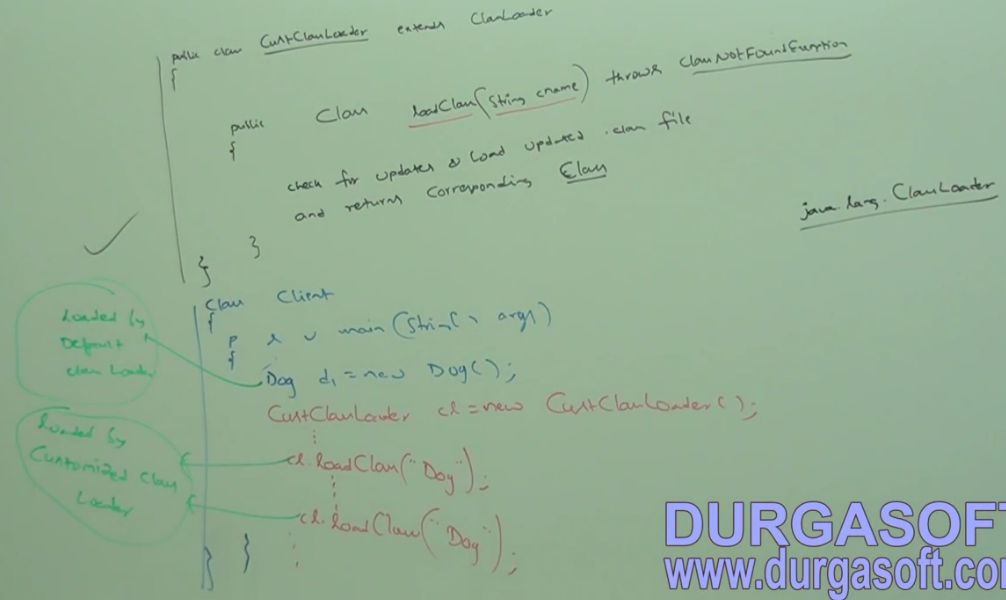 public class CustClassLoader extends ClassLoader
{
public Class loadClass(String cname) throws ClassNotFoundException
{
check for updates & load updated .class file
and returns corresponding Class
}
}
java.lang.ClassLoader
Class Client
{
p s v main(String[] args)
{
Dog d1 = new Dog();
CustClassLoader cl = new CustClassLoader();
cl.loadClass("Dog");
cl.loadClass("Dog");
}
}
Loaded by
Default
class Loader
Loaded by
Customized Class
Loader
DURGASOFT
www.durgasoft.com